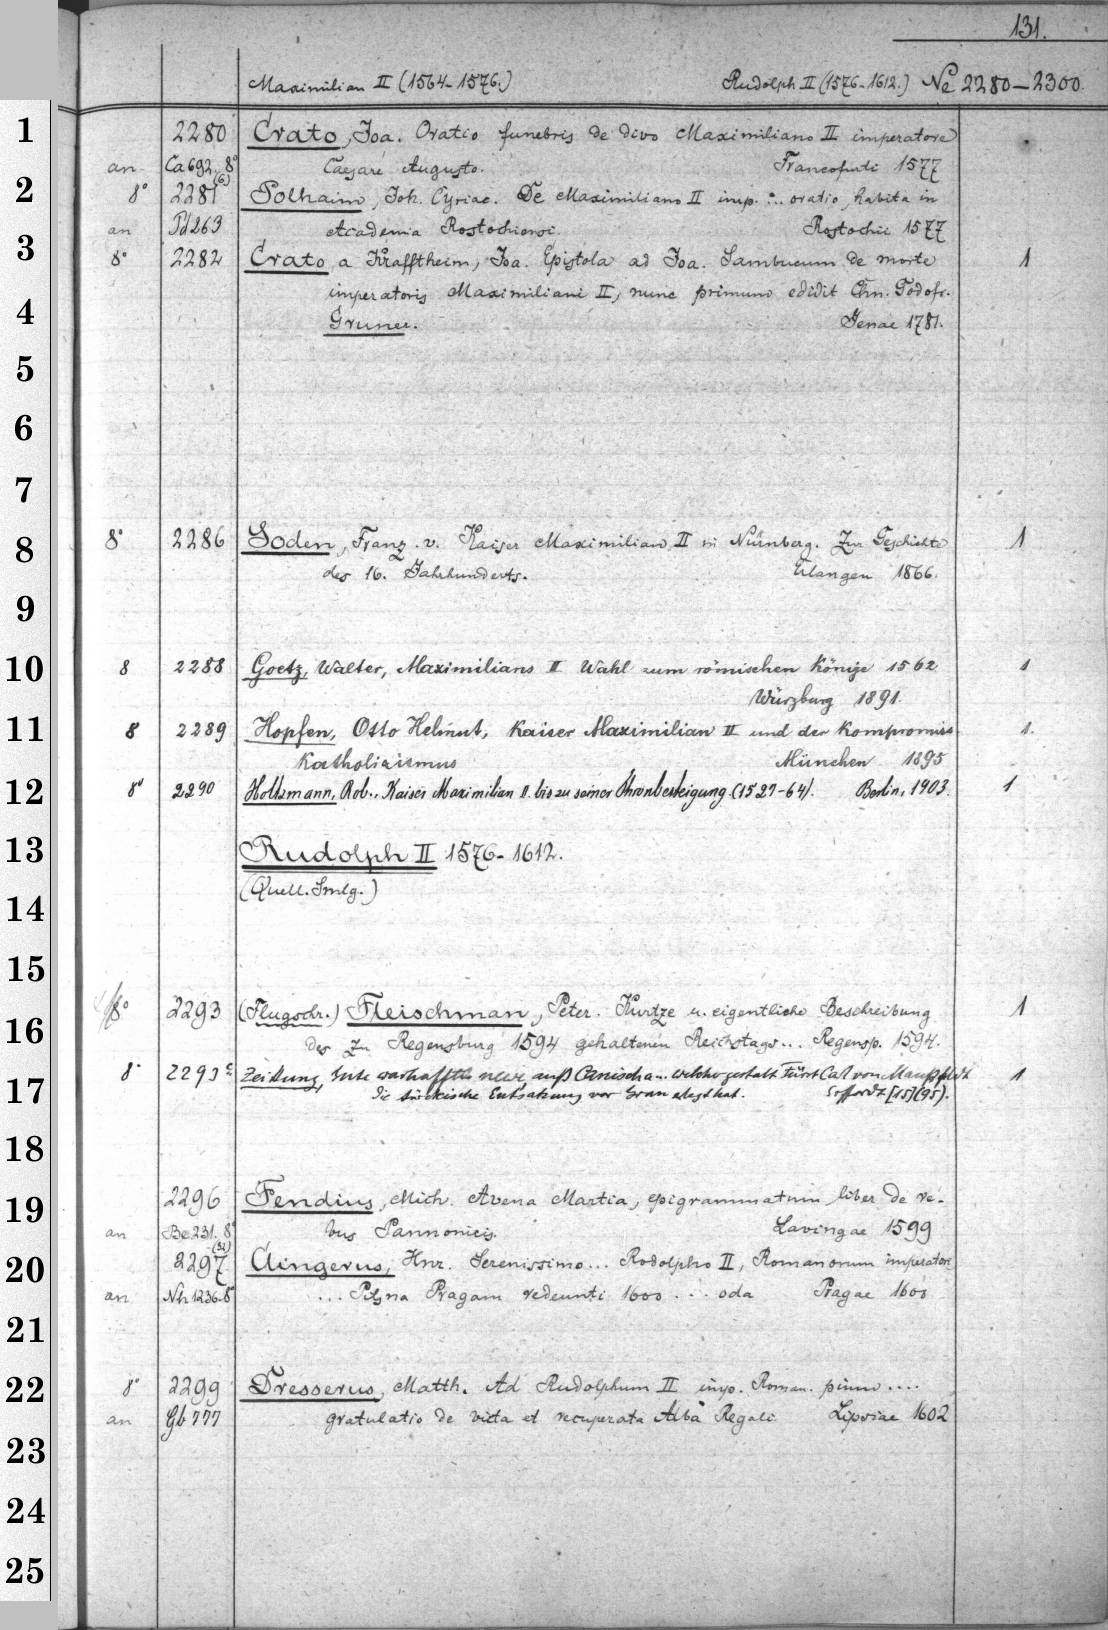 131.
Maximilian II (1564-1576.) Rudolph II (1576-1612.) No 2280-2300.
1 2280 Crato, Joa. Oratio funebris de divo Maximiliano II imperatore
an Ca 692, 8° (6) Caesare Augusto. Francofurti 1577
2 8° 2281 Polhaim, Joh. Cyriac. De Maximiliano II imp. ... oratio, habita in
an Pd 263 Academia Rostochiensi. Rostochii 1577
3 8° 2282 Crato a Krafftheim, Joa. Epistola ad Joa. Sambucum de morte 1
4 imperatoris Maximiliani II, nunc primum edidit Chn. Godofr.
Gruner. Jenae 1781.
5
6
7
8 8° 2286 Soden, Franz v. Kaiser Maximilian II in Nürnberg. Zur Geschichte 1
des 16. Jahrhunderts. Erlangen 1866.
9
10 8 2288 Goetz, Walter, Maximilians II Wahl zum römischen Könige 1562 1
Würzburg 1891.
11 8 2289 Hopfen, Otto Helmut, Kaiser Maximilian II und der Kompromiss 1.
katholizismus München 1895
12 8° 2290 Holtzmann, Rob., Kaiser Maximilian II. bis zu seiner Thronbesteigung (1527-64). Berlin, 1903. 1
13 Rudolph II 1576-1612.
(Quell. Smlg.)
14
15
8° 2293 (Flugschr.) Fleischman, Peter. Kurtze u. eigentliche Beschreibung 1
16 des zu Regensburg 1594 gehaltenen Reichstags... Regensp. 1594.
17 8° 2293 Zeittung, Gute warhaffte neue auß welcher gestalt Fürst Carl von Manßfeldt 1
die türckische Entsatzung vor Gran elegt hat. Erffordt [15](95).
18
19 2296 Fendius, Mich. Avena Martia, epigrammatum liber de re-
an Be 231. 8° (32) bus Pannonicis. Lavingae 1599
20 2297 Clingerus, Hnr. Serenissimo... Rodolpho II, Romanorum imperatori
an Nh 1236. 8° ... Pilsna Pragam redeunti 1600 ... oda Pragae 1600
21
22 8° 2299 Dresserus, Matth. Ad Rudolphum II imp. Roman. pium ....
an Gb 777 gratulatio de victa et recuperata Alba Regali Lipsiae 1602
23
24
25